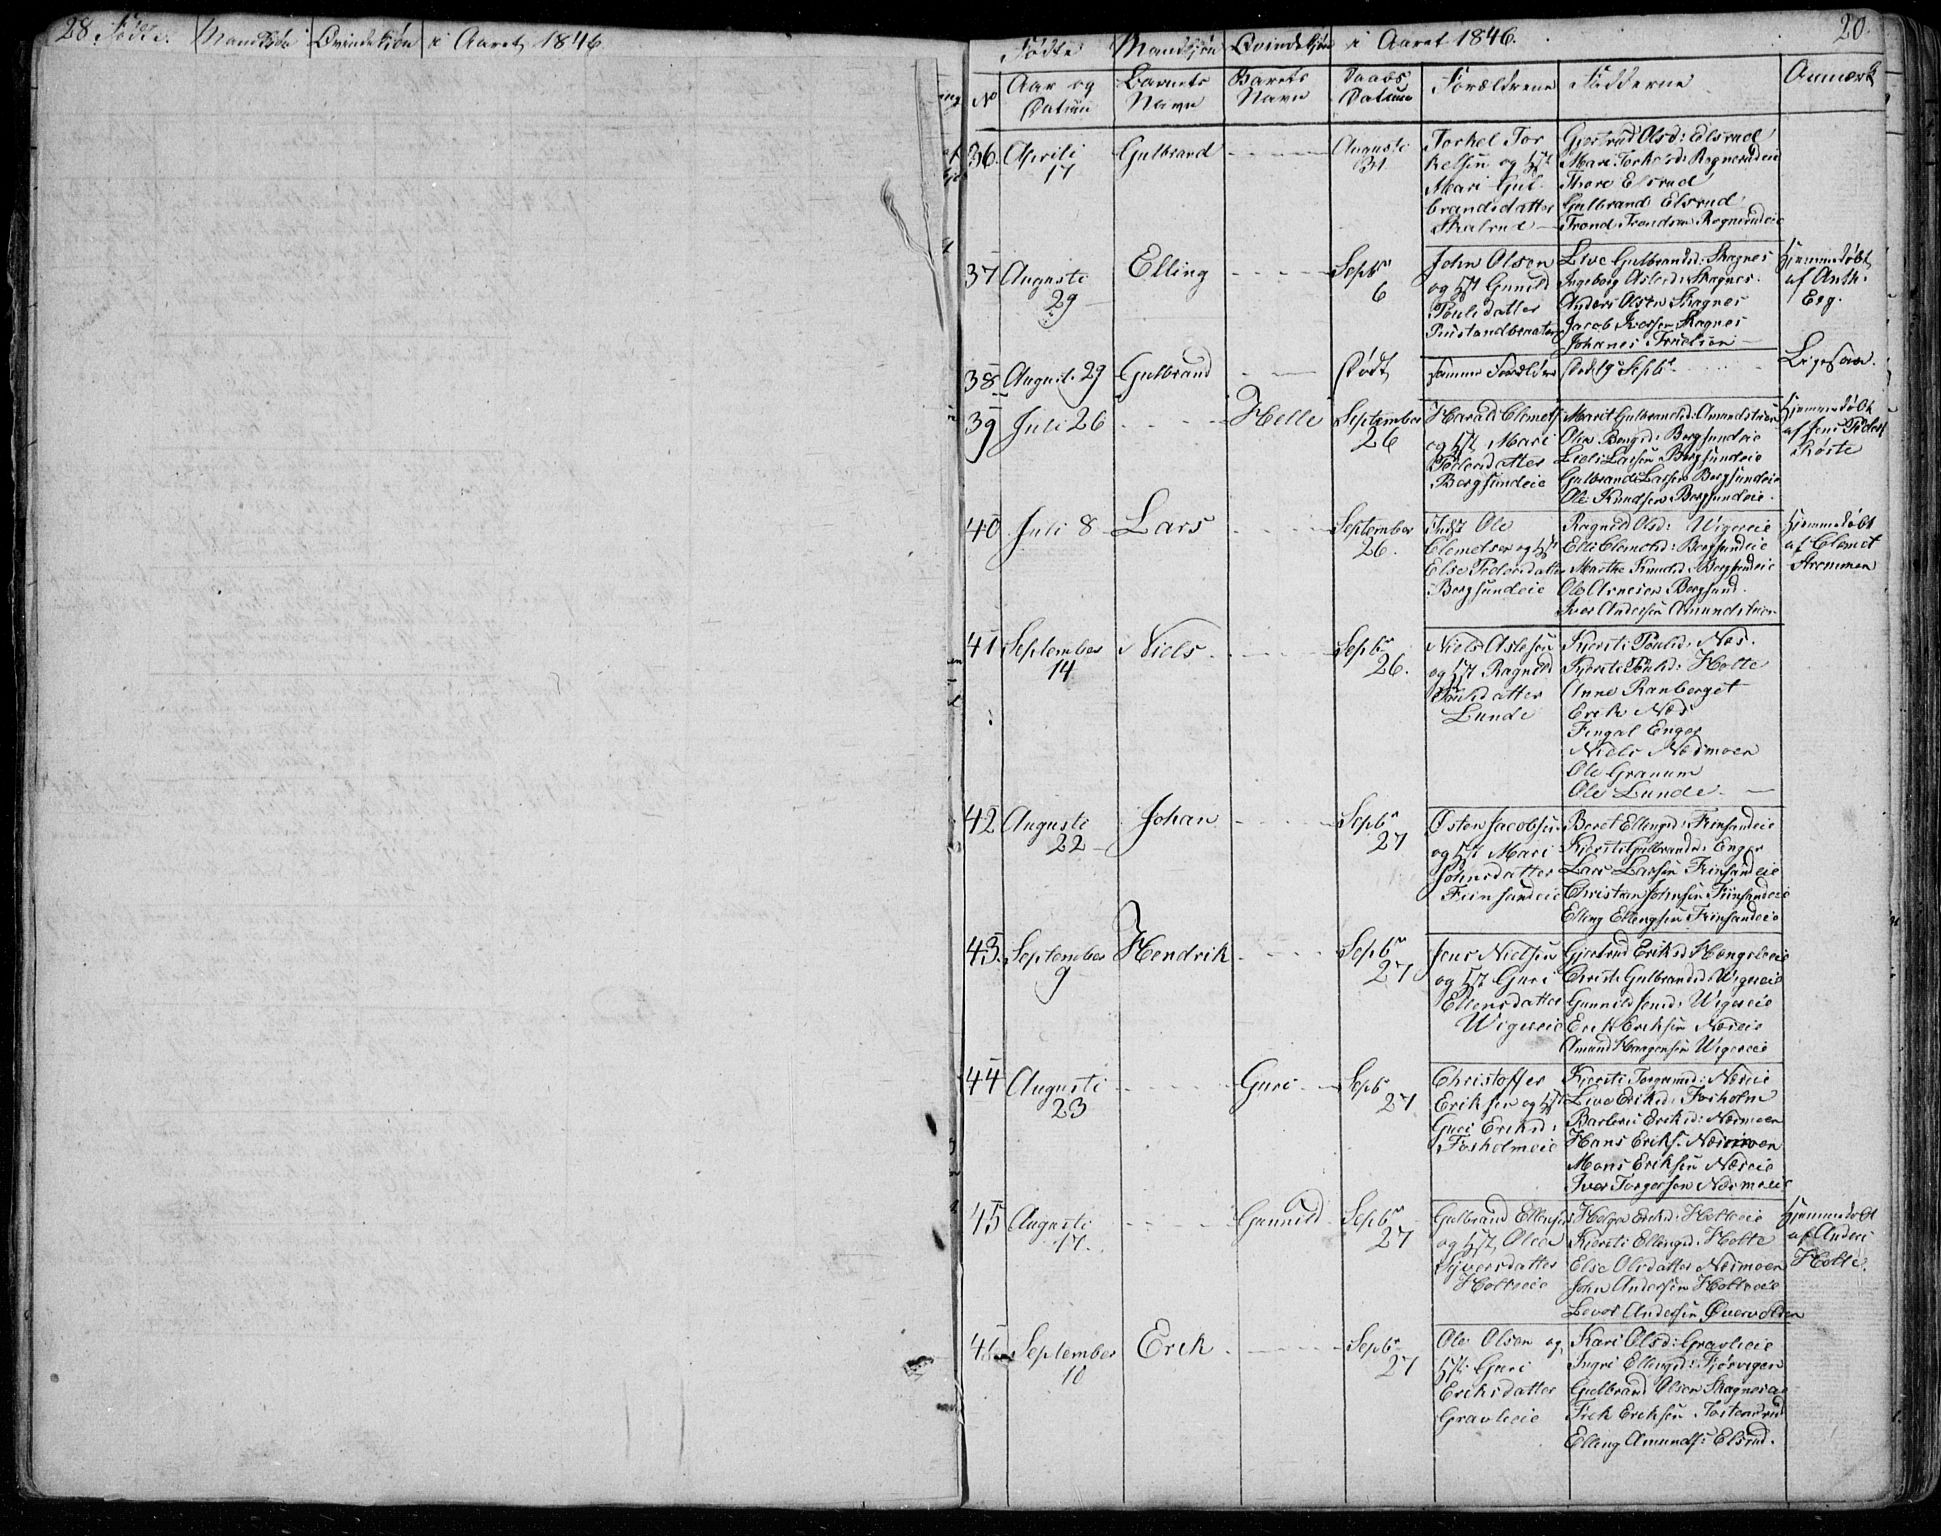 28. Fødte. Mandkiøn Qvindekiøn i Aaret 1846
Fødte Mandkjøn Qvindekjøn i Aaret 1846. 20.
No Aar og Datum Barnets Navn Barnets Navn Daabs Datum Forældrene Fadderne Anmærk
36. Aprili 17 Gulbrand Augusti 31
Torkel Tor
kelsen og
Mari Gul
brandsdatter
Skalrud
Gjertrud Olsd: Elsrud
Mari Torkelsd: Ragnerudeie
Thore Elsrud
Gulbrand Elsrud
Trond Trondsen Ragnerudeie
37 Augusti 29 Elling Septbr 6
John Olsen
og Gunild
Poulsdatter
Live Gulbrandsd: Skagnes
Ingeborg Aslesd: Skagnes.
Anders Olsen Skagnes
Jacob Iversen Skagnes
Johanes
Hjemmedøbt
af Anth.
Eeg.
38 August. 29 Gulbrand Dødt
samme Forældre
død 19 Septbr
Ligesaa.
39 Juli 26 Helle September 26
Harald Clemets
og Mari
Pedersdatter
Bergsundeie
Marit Gulbrandsd: Amundstuen
Olea Bengd: Bergsundeie
Ledi Larsen Bergsundeie
Gulbrand Larsen Bergsundeie
Ole Knudsen Bergsundeie.
Hjemmedøbt
af Jens Peders
Røste
40 Juli 8 Lars September 26.
Indst Ole
Clemetsen og
Else Pedersdatter
Bergsundeie
Ragnild Olsd: Wigereie
Elli Clemetsd: Bergsundeie
Marthe Knudsd: Bergsundeie
Ole Arnesen Bergsund.
Iver Andersen Amundstuen
Hjemmedøbt
af Clemet
Strømmen
41 September 14 Niels Septbr 26.
Niels Aslesen
og Ragnild
Poulsdatter
Lunde
Kjersti Poulsd: Næs.
Kjersti Poulsd: Holte
Anne Ranberget
Erik Næs
Fingal Enger
Niels Næsmoen
Ole Granum
Ole Lunde
42 Augusti 22 Johan Septbr 27
Østen Jacobsen
og Mari
Johnsdatter
Finsandeie
Beret Ellingsd: Finsandeie
Kjersti Gulbrandsd: Enger
Lars Larsen Finsandeie
Christian Johnsen Finsandeie
Elling Ellingsen Finsandeie
43. September 9 Hendrik Septbr 27
Jens Nielsen
og Guri
Ellensdatter
Wigereie
Gjertrud Eriksd: Hengsleeie
Christi Gulbrandsd: Wigereie
Gunnild Jensd: Wigereie
Erik Eriksen Næseie
Amund Haagensen Wigereie
44 Augusti 23 Guri Septbr 27
Christoffer
Eriksen og
Guri Eriksd:
Fosholmeie
Kjersti Torgersd: Næseie
Live Eriksd: Fosholm
Barbroe Eriksd: Næsmoen
Hans Eriks. Næsmoen
Mons Eriksen Næseie
Iver Torgersen Næsmoeie
45 Augusti 17. Gunnild Septbr 27
Gulbrand Ellensen
og Olea
Syversdatter
Holteeie
Helga Eriksd: Holteeie
Kjersti Ellingsd: Holte
Else Olsdatter Næsmoen
John Andersen Holteeie
Levor Andersen Øvervolden
Hjemmedøbt
af Anders
Holte.
46 September 10 Erik Septbr 27
Ole Olsen og
Guri
Eriksdatter
Gravlieie
Kari Olsd: Gravlieie
Ingri Ellingsd: Tjørvigen
Gulbrand Olsen Skagneseie
Erik Eriksen Tostenrud
Elling Amunds: Elsrud.